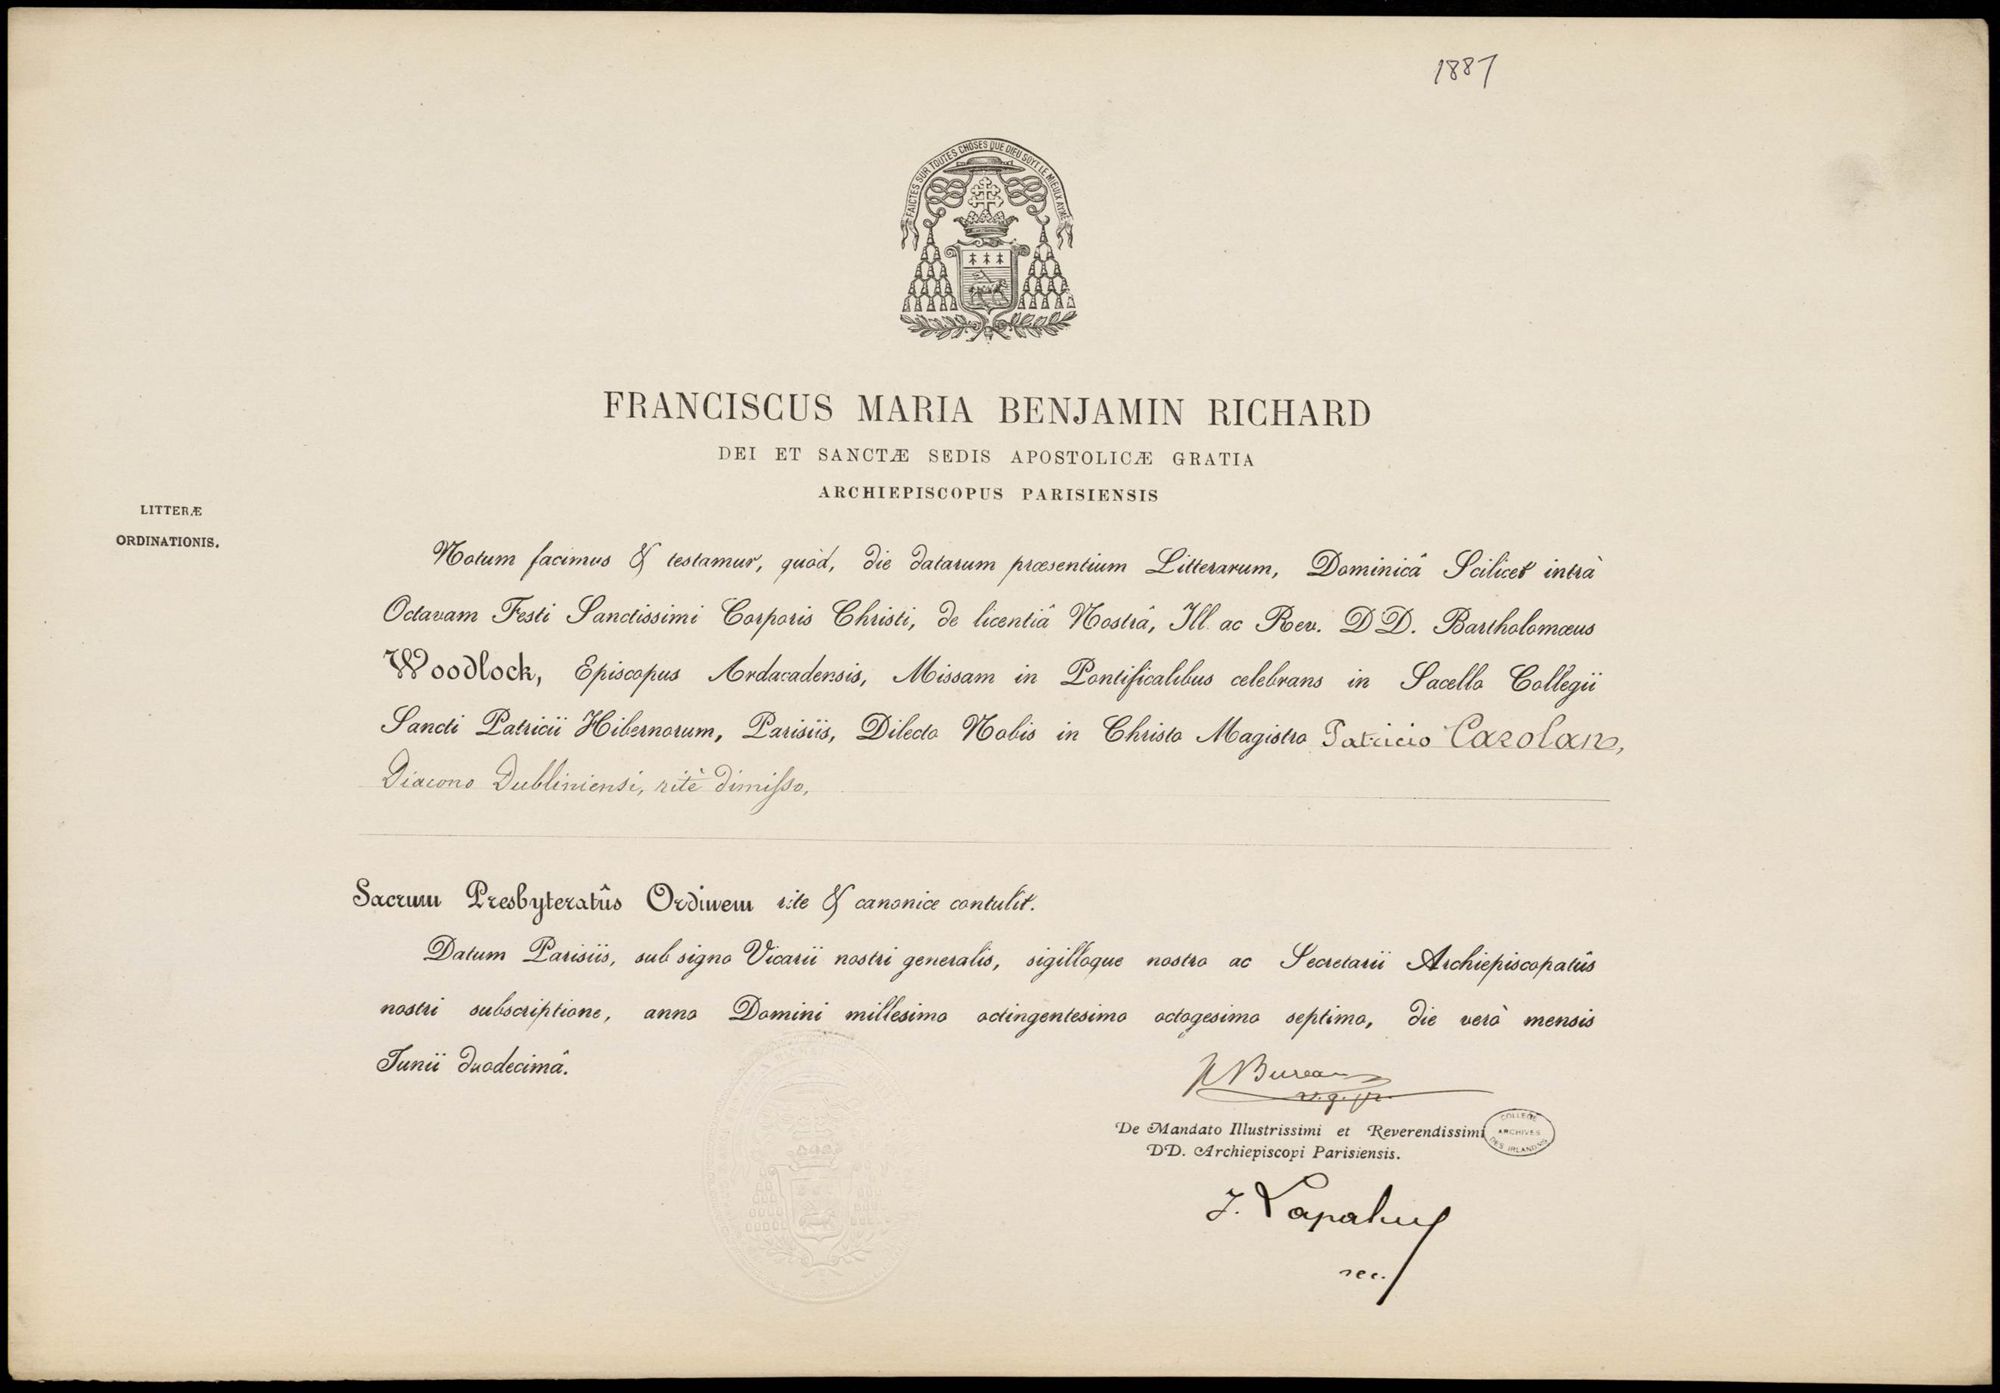 1887
FAICTES SUR TOUTES CHOSES QUE DIEU SOYT LE MIEULX AYMÉ
FRANCISCUS MARIA BENJAMIN RICHARD
DEI ET SANCTÆ SEDIS APOSTOLICÆ GRATIA
ARCHIEPISCOPUS PARISIENSIS
LITTERÆ
ORDINATIONIS.
Notum facimus & testamur, quòd, die datarum præsentium Litterarum, Dominicâ Scilicet intrà
Octavam Festi Sanctissimi Corporis Christi, de licentiâ Nostrâ, Ill. ac Rev. DD. Bartholomæus
Woodlock, Episcopus Ardacadensis, Missam in Pontificalibus celebrans in Sacello Collegii
Sancti Patricii Hibernorum, Parisiis, Dilecto Nobis in Christo Magistro Patricio Carolan,
Diacono Dubliniensi, ritè dimisso,
Sacrum Presbyteratûs Ordinem rite & canonice contulit.
Datum Parisiis, sub signo Vicarii nostri generalis, sigilloque nostro ac Secretarii Archiepiscopatûs
nostri subscriptione, anno Domini millesimo octingentesimo octogesimo septimo, die verò mensis
Junii duodecimâ.
Bureau
v. g.
De Mandato Illustrissimi et Reverendissimi
DD. Archiepiscopi Parisiensis.
COLLEGE
ARCHIVES
DES IRLANDAIS
J.
sec.